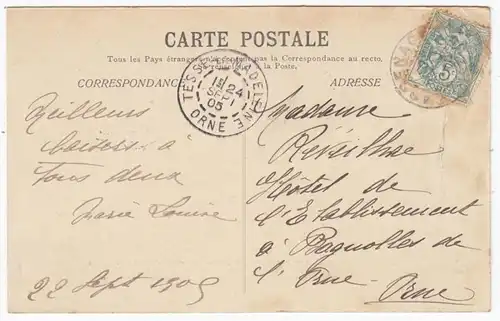 CARTE POSTALE
Tous les Pays étrangers n'acceptent pas la Correspondance au recto,
la Poste.
CORRESPONDANCE
ADRESSE
TESSÉ LA MADELEINE
24
SEPT
05
ORNE
5
Meilleurs
baisers à
tous deux
Marie Louise
22 Sept 1905
Madame
Hôtel de
l'Etablissement
à Bagnolles de
l'Orne
Orne